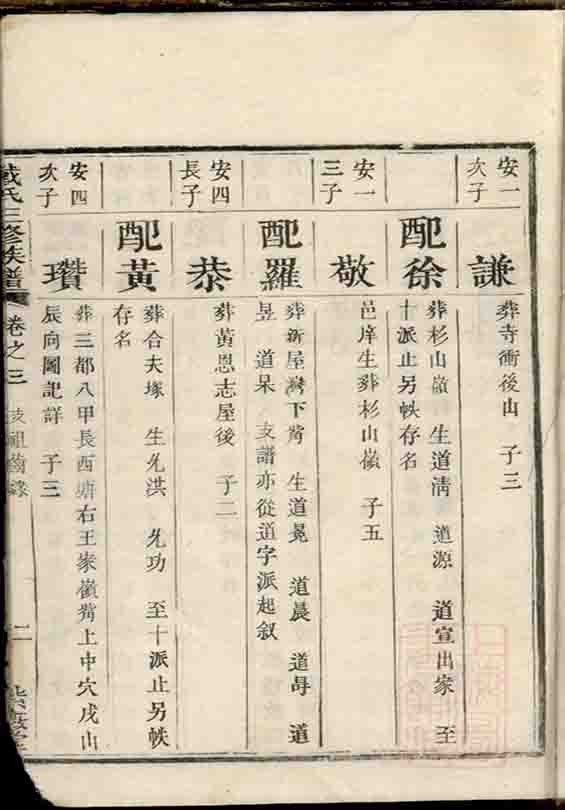 安一
次子
謙
葬寺衝後山 子三
配徐
葬杉山嶺 生道清 道源 道宣出家 至
十派止另帙存名
安一
三子
敬
邑庠生葬杉山嶺 子五
配羅
葬新屋灣下背 生道晃 道晨 道㝵 道
昱 道杲 支譜亦從道字派起敘
安四
長子
恭
葬黃恩志屋後 子二
配黃
葬合夫塚 生允洪 允功 至十派止另帙
存名
安四
次子
瓚
葬三都八甲長西塘右王家嶺背上中穴戌山
辰向圖記詳 子三
戴氏三修族譜
卷之三
支祖
二